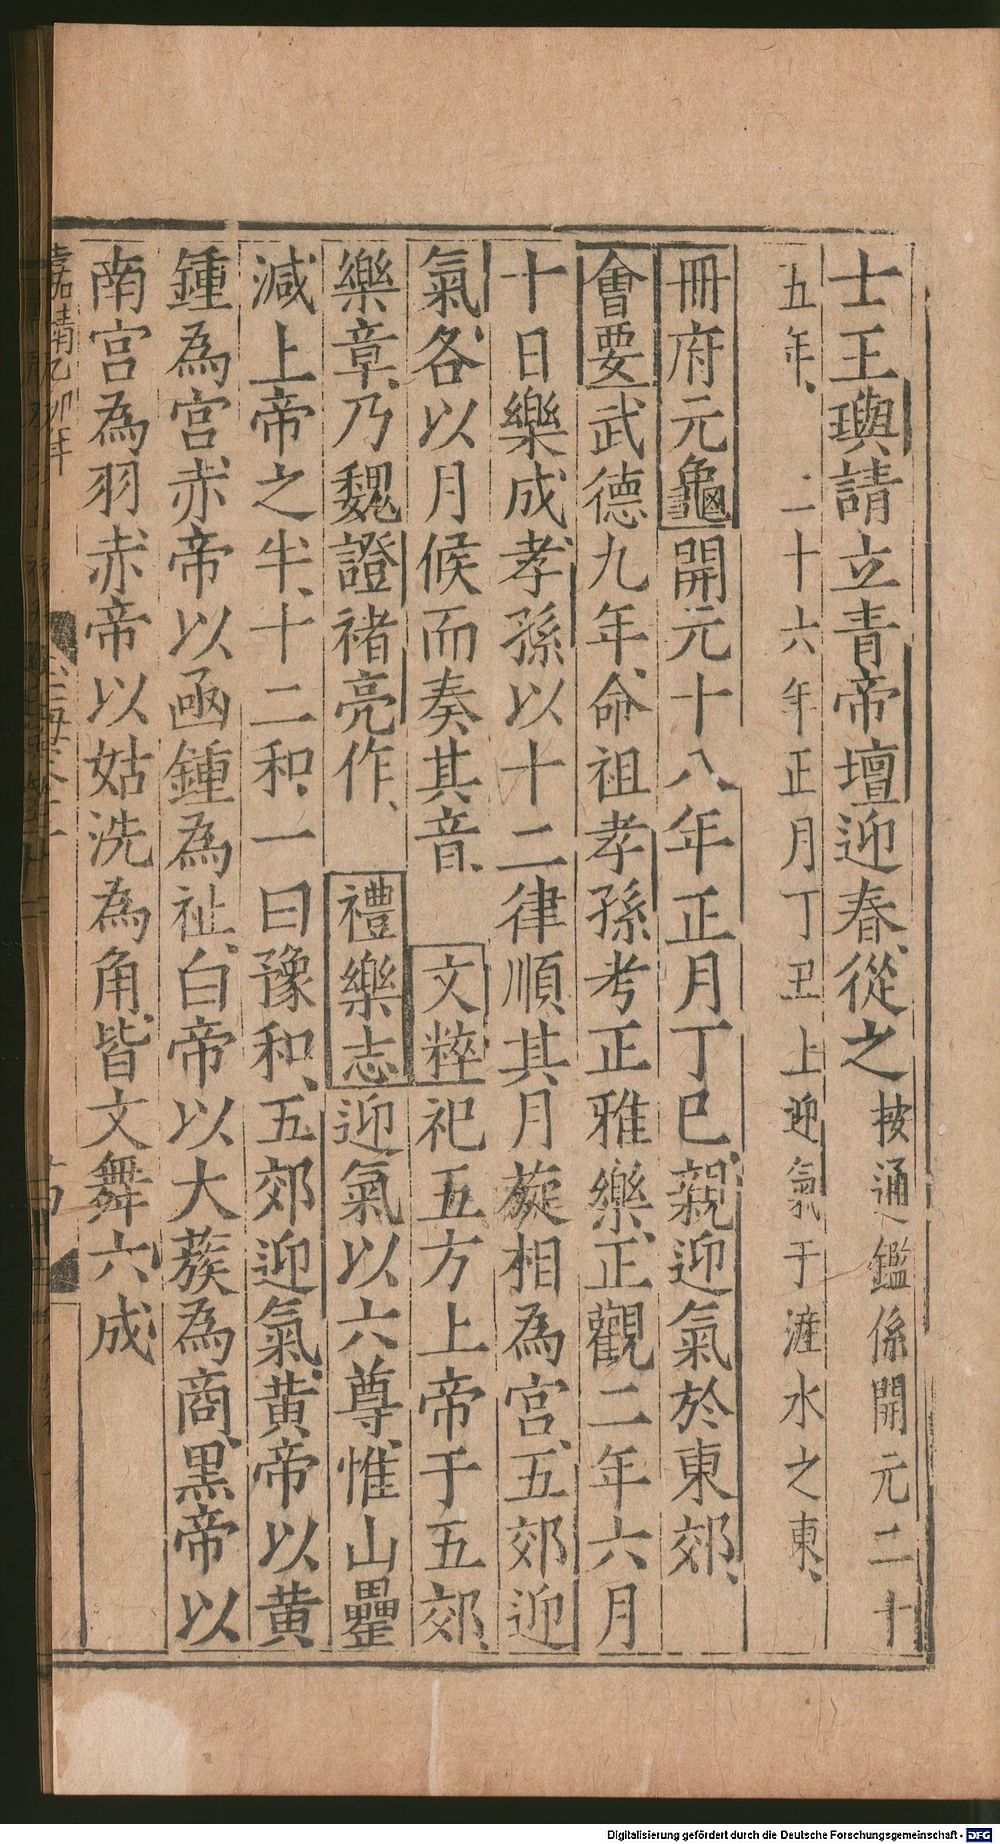 士王璵請立青帝壇迎春從之按通鑑係開元二十
五年二十六年正月丁丑上迎氣于滻水之東
冊府元龜開元十八年正月丁巳親迎氣於東郊
會要武德九年命祖孝孫考正雅樂正觀二年六月
十日樂成孝孫以十二律順其月旋相為宮五郊迎
氣各以月候而奏其音 文粹祀五方上帝于五郊
樂章乃魏證褚亮作 禮樂志迎氣以六尊惟山罍
減上帝之半十二和一曰豫和五郊迎氣黄帝以黄
鍾為宮赤帝以函鍾為祉白帝以大蔟為商黒帝以
南宫為羽赤帝以姑洗為角皆文舞六成
嘉靖乙卯年
Digitalisierung gefördert durch die Deutsche Forschungsgemeinschaft - DFG